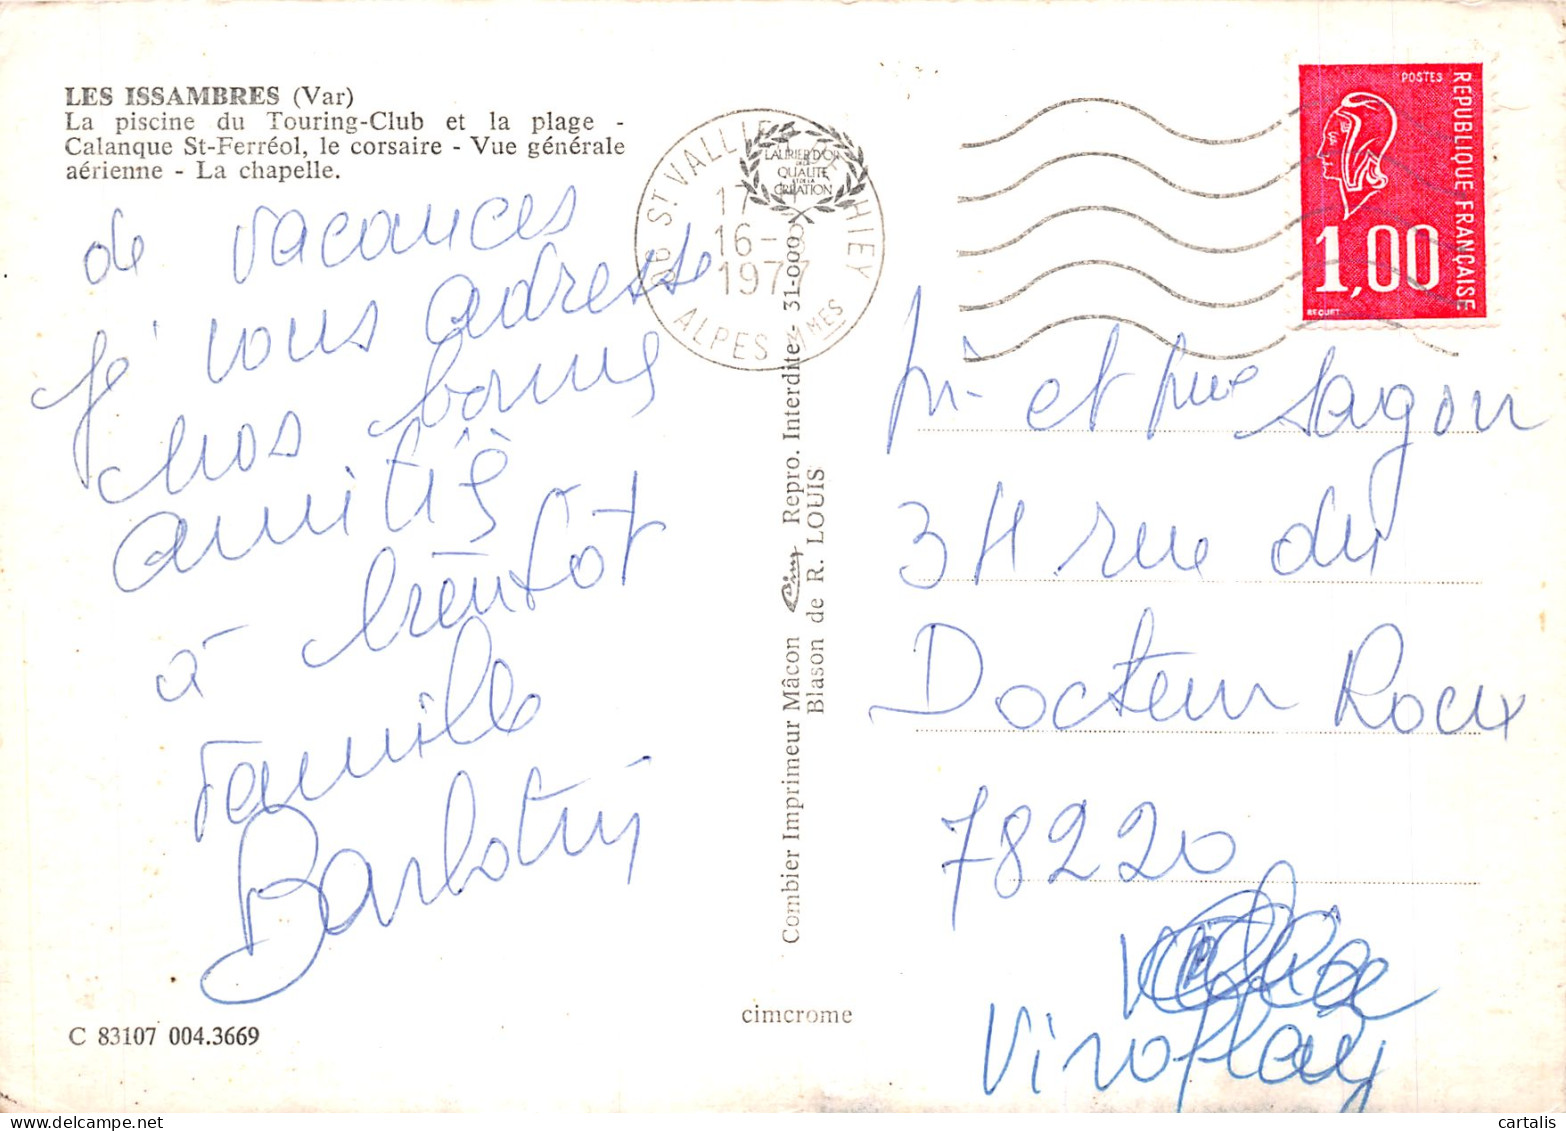 LES ISSAMBRES (Var)
La piscine du Touring-Club et la plage -
Calanque St-Ferréol, le corsaire - Vue générale
aérienne - La chapelle.
de vacances
je vous adresse
nos bonnes
amitiés
à bientôt
famille
C 83107 004.3669
06 ST VALLIER DE THIEY
17
16-8
1977
ALPES MMES
LAURIER D'OR
DE LA
QUALITÉ
ET DE LA
CRÉATION
Combier Imprimeur Mâcon Cim Repro. Interdite- 31-000
Blason de R. LOUIS
cimcrome
POSTES
REPUBLIQUE FRANÇAISE
1,00
BEQUET
et Sagon
34 rue du
Docteur Roux
78220
Viroflay